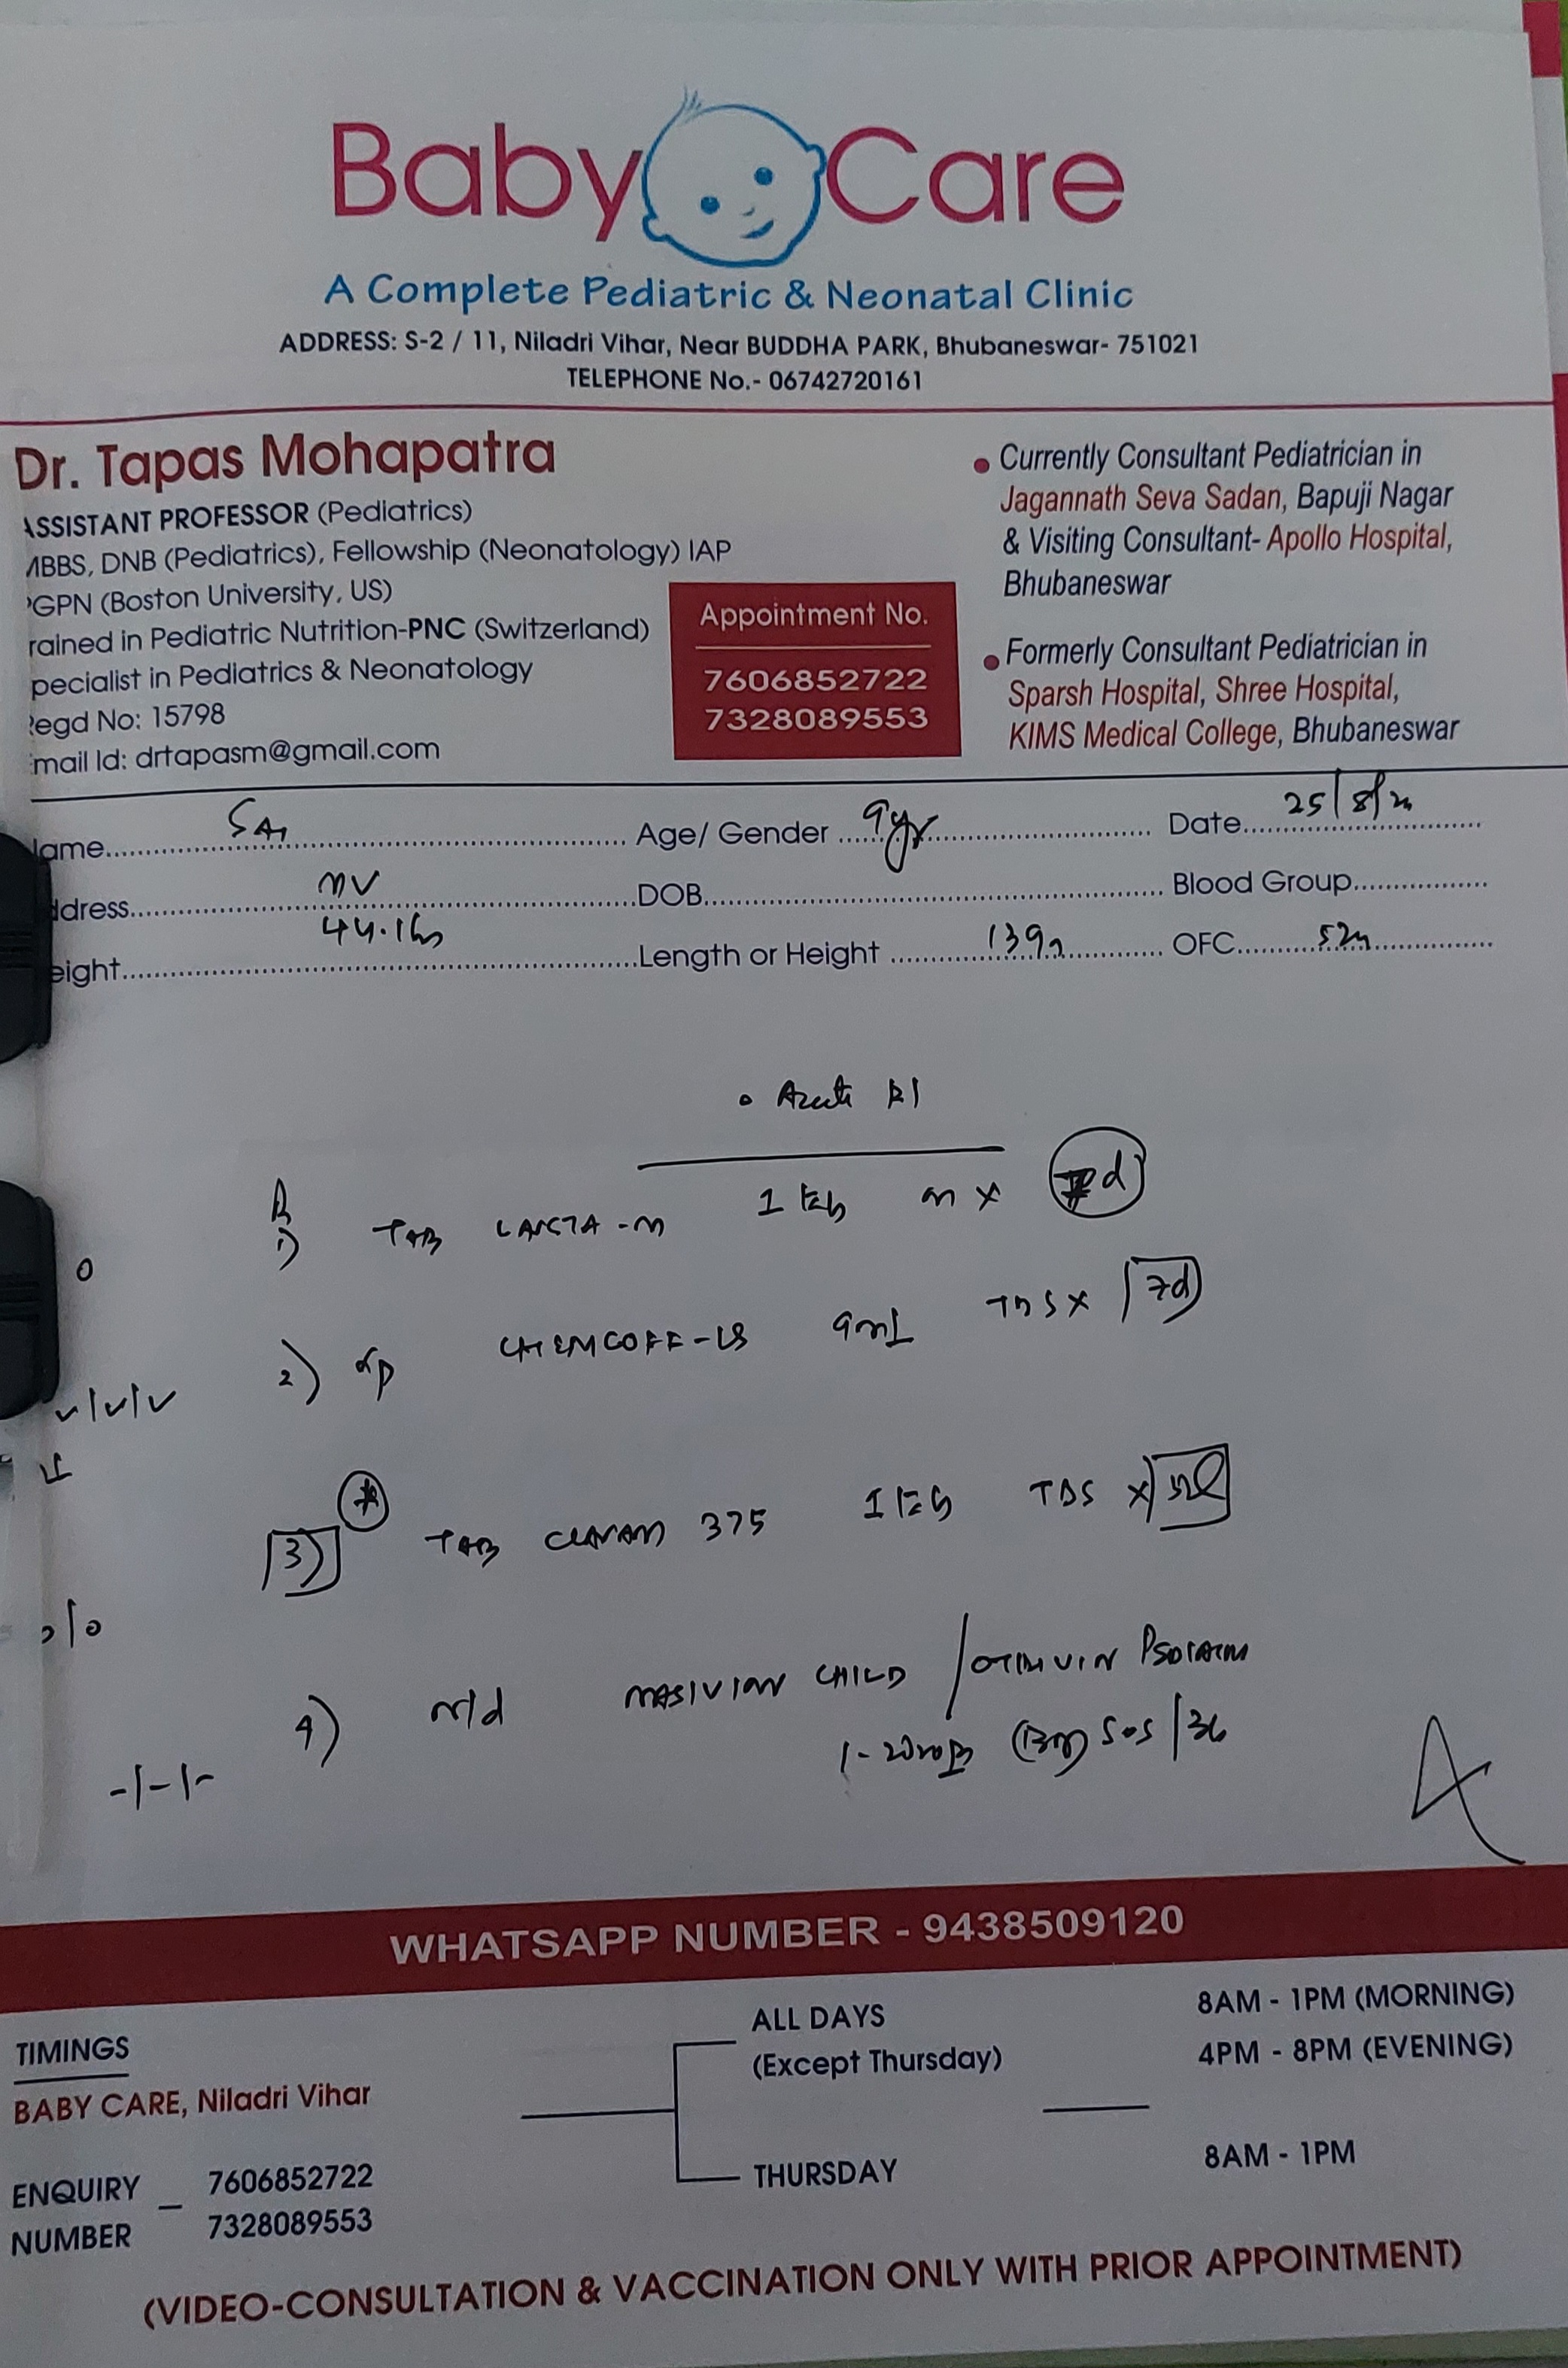 Baby Care
A Complete Pediatric & Neonatal Clinic
ADDRESS: S-2 / 11, Niladri Vihar, Near BUDDHA PARK, Bhubaneswar- 751021
TELEPHONE No.- 06742720161
Dr. Tapas Mohapatra
ASSISTANT PROFESSOR (Pediatrics)
MBBS, DNB (Pediatrics), Fellowship (Neonatology) IAP
PGPN (Boston University, US)
rained in Pediatric Nutrition-PNC (Switzerland)
pecialist in Pediatrics & Neonatology
Regd No: 15798
Email Id: drtapasm@gmail.com
Appointment No.
7606852722
7328089553
• Currently Consultant Pediatrician in
Jagannath Seva Sadan, Bapuji Nagar
& Visiting Consultant- Apollo Hospital,
Bhubaneswar
• Formerly Consultant Pediatrician in
Sparsh Hospital, Shree Hospital,
KIMS Medical College, Bhubaneswar
ame SAI Age/ Gender 9yr Date 25/8/
ddress NV DOB Blood Group
eight 44.1 Length or Height 139 OFC 52
Acute
1) TAB 1 tab x d
2) CHEMCOFF-LS 9ml TDS x 7d
3) TAB 375 1 tab TDS x
4) n/d NASIVION CHILD /
1-2 drops SOS /
WHATSAPP NUMBER - 9438509120
TIMINGS
BABY CARE, Niladri Vihar
ALL DAYS
(Except Thursday)
8AM - 1PM (MORNING)
4PM - 8PM (EVENING)
THURSDAY
8AM - 1PM
ENQUIRY NUMBER – 7606852722
7328089553
(VIDEO-CONSULTATION & VACCINATION ONLY WITH PRIOR APPOINTMENT)